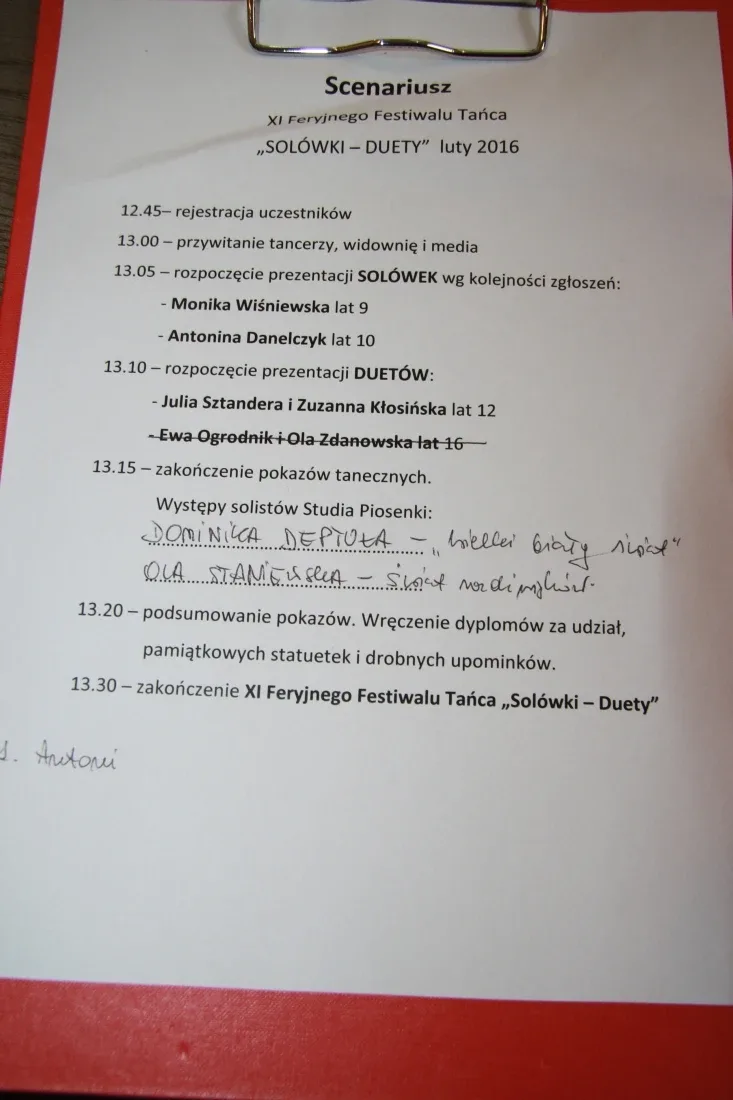 Scenariusz
XI Feryjnego Festiwalu Tańca
„SOLÓWKI – DUETY” luty 2016
12.45– rejestracja uczestników
13.00 – przywitanie tancerzy, widownię i media
13.05 – rozpoczęcie prezentacji SOLÓWEK wg kolejności zgłoszeń:
- Monika Wiśniewska lat 9
- Antonina Danelczyk lat 10
13.10 – rozpoczęcie prezentacji DUETÓW:
- Julia Sztandera i Zuzanna Kłosińska lat 12
- Ewa Ogrodnik i Ola Zdanowska lat 16
13.15 – zakończenie pokazów tanecznych.
Występy solistów Studia Piosenki:
DOMINIKA DEPTUŁA – „Wielki biały świat”
OLA STANIEWSKA – Świat
13.20 – podsumowanie pokazów. Wręczenie dyplomów za udział,
pamiątkowych statuetek i drobnych upominków.
13.30 – zakończenie XI Feryjnego Festiwalu Tańca „Solówki – Duety”
Antoni